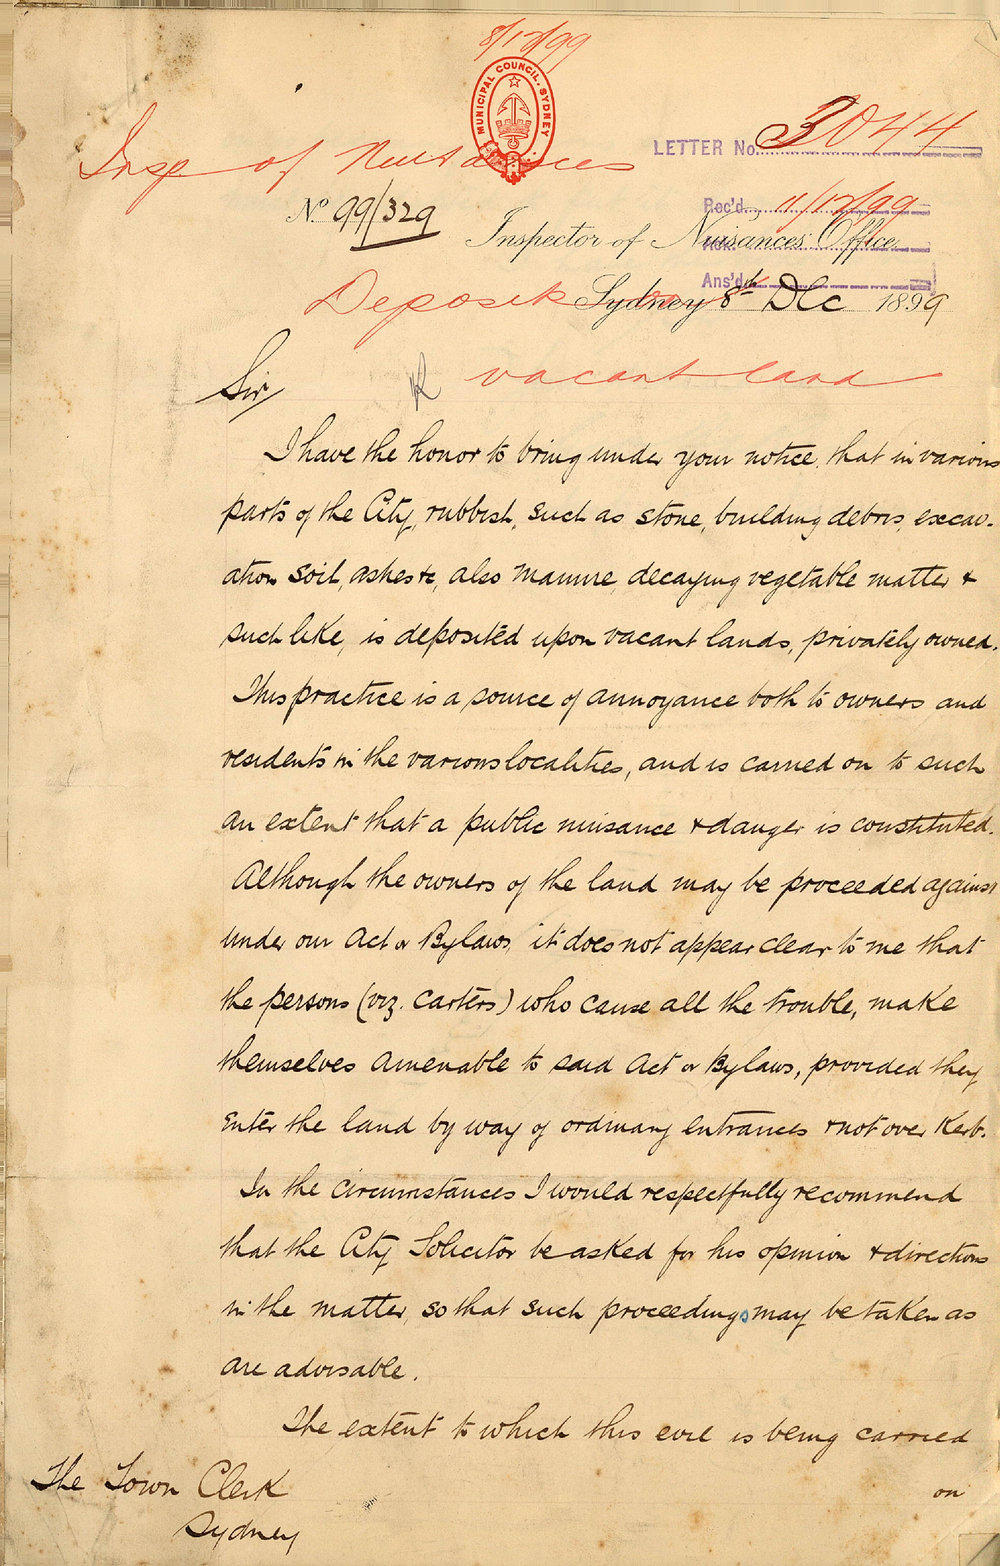 8/12/99
MUNICIPAL COUNCIL. SYDNEY
LETTER No. 3044
Insp of Nuisances
Rec'd 11/12/99
No 99/329
Inspector of Nuisances Office,
Ans'd
Deposit
Sydney 8th Dec 1899
vacant land
Sir
I have the honor to bring under your notice, that in various
parts of the City, rubbish, such as stone, building debris, excav-
ation soil, ashes &c, also manure, decaying vegetable matter &
such like, is deposited upon vacant lands, privately owned.
This practice is a source of annoyance both to owners and
residents in the various localities, and is carried on to such
an extent that a public nuisance & danger is constituted.
Although the owners of the land may be proceeded against
under our Act or Bylaws, it does not appear clear to me that
the persons (viz. carters) who cause all the trouble, make
themselves amenable to said Act or Bylaws, provided they
enter the land by way of ordinary entrances & not over Kerb.
In the circumstances I would respectfully recommend
that the City Solicitor be asked for his opinion & directions
in the matter, so that such proceedings may be taken as
are advisable.
The extent to which this evil is being carried
on
The Town Clerk
Sydney